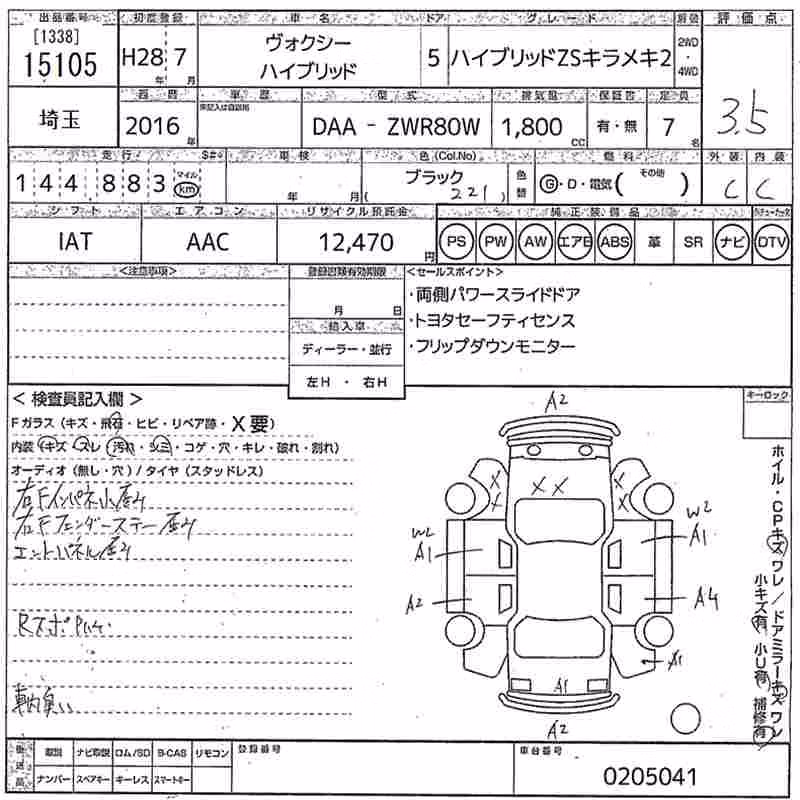 出品番号 初度登録 車名 ドア グレード 駆動 評価点
[1338]
15105 H28年 7月 ヴォクシー ハイブリッド 5 ハイブリッドZSキラメキ2 2WD・4WD 3.5
西暦 車歴 型式 排気量 保証書 定員
埼玉 2016年 DAA - ZWR80W 1,800cc 有・無 7名
走行 S#® 車検 色(Col.No) 燃料 外装 内装
144,883 マイル km 年 月 ブラック (221) 色替 G・D・電気( その他 ) C C
シフト エアコン リサイクル預託金 純正装備品
IAT AAC 12,470円 PS PW AW エアB ABS 革 SR ナビ DTV
<注意事項> 登録書類有効期限 <セールスポイント>
月 日
・両側パワースライドドア
・トヨタセーフティセンス
・フリップダウンモニター
輸入車
ディーラー・並行
左H ・ 右H
＜検査員記入欄＞
Fガラス (キズ・飛石・ヒビ・リペア跡・X要)
内装 (キズ・スレ・汚れ・シミ・コゲ・穴・キレ・破れ・割れ)
オーディオ (無し・穴) / タイヤ (スタッドレス)
右Fインパネ小歪み
右Fフェンダーステー歪み
エントパネル歪み
Rスポ
車内臭い
キーロック
A2
X X X X X X
W2 A1 W2 A1
A2 A4
A1 A1
A2
ホイル・CPキズワレ / ドアミラーキズワレ
小キズ有 小U有 補修有
後送品 取説 ナビ取説 ロム/SD B-CAS リモコン 登録番号 車台番号
ナンバー スペアキー キーレス スマートキー 0205041